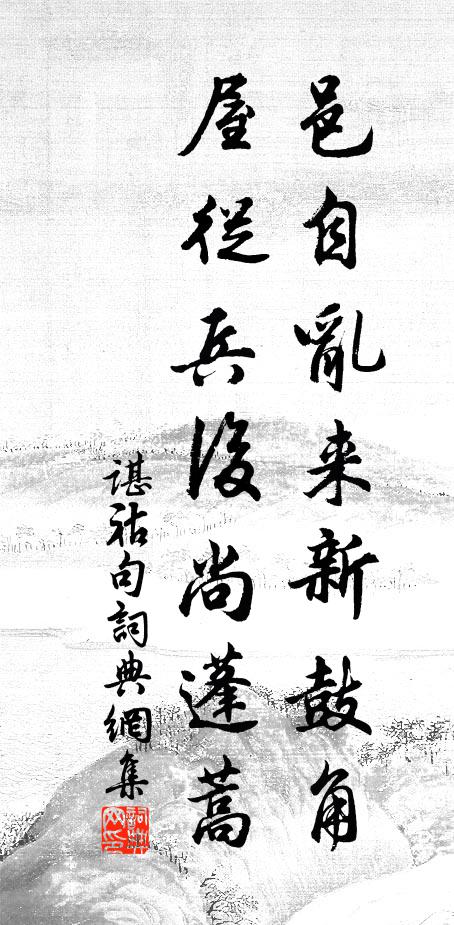 邑自亂来新鼓角
屋從兵後尚蓬蒿
諶祜句詞典網集